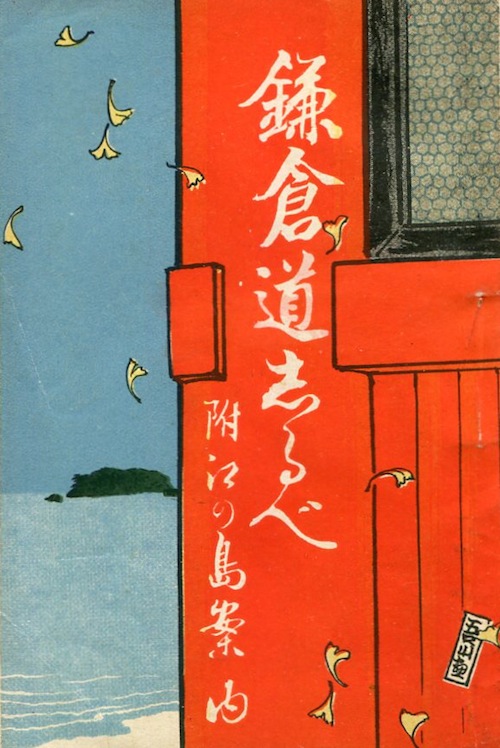 鎌倉道志るべ
附江の島案内
吾山画